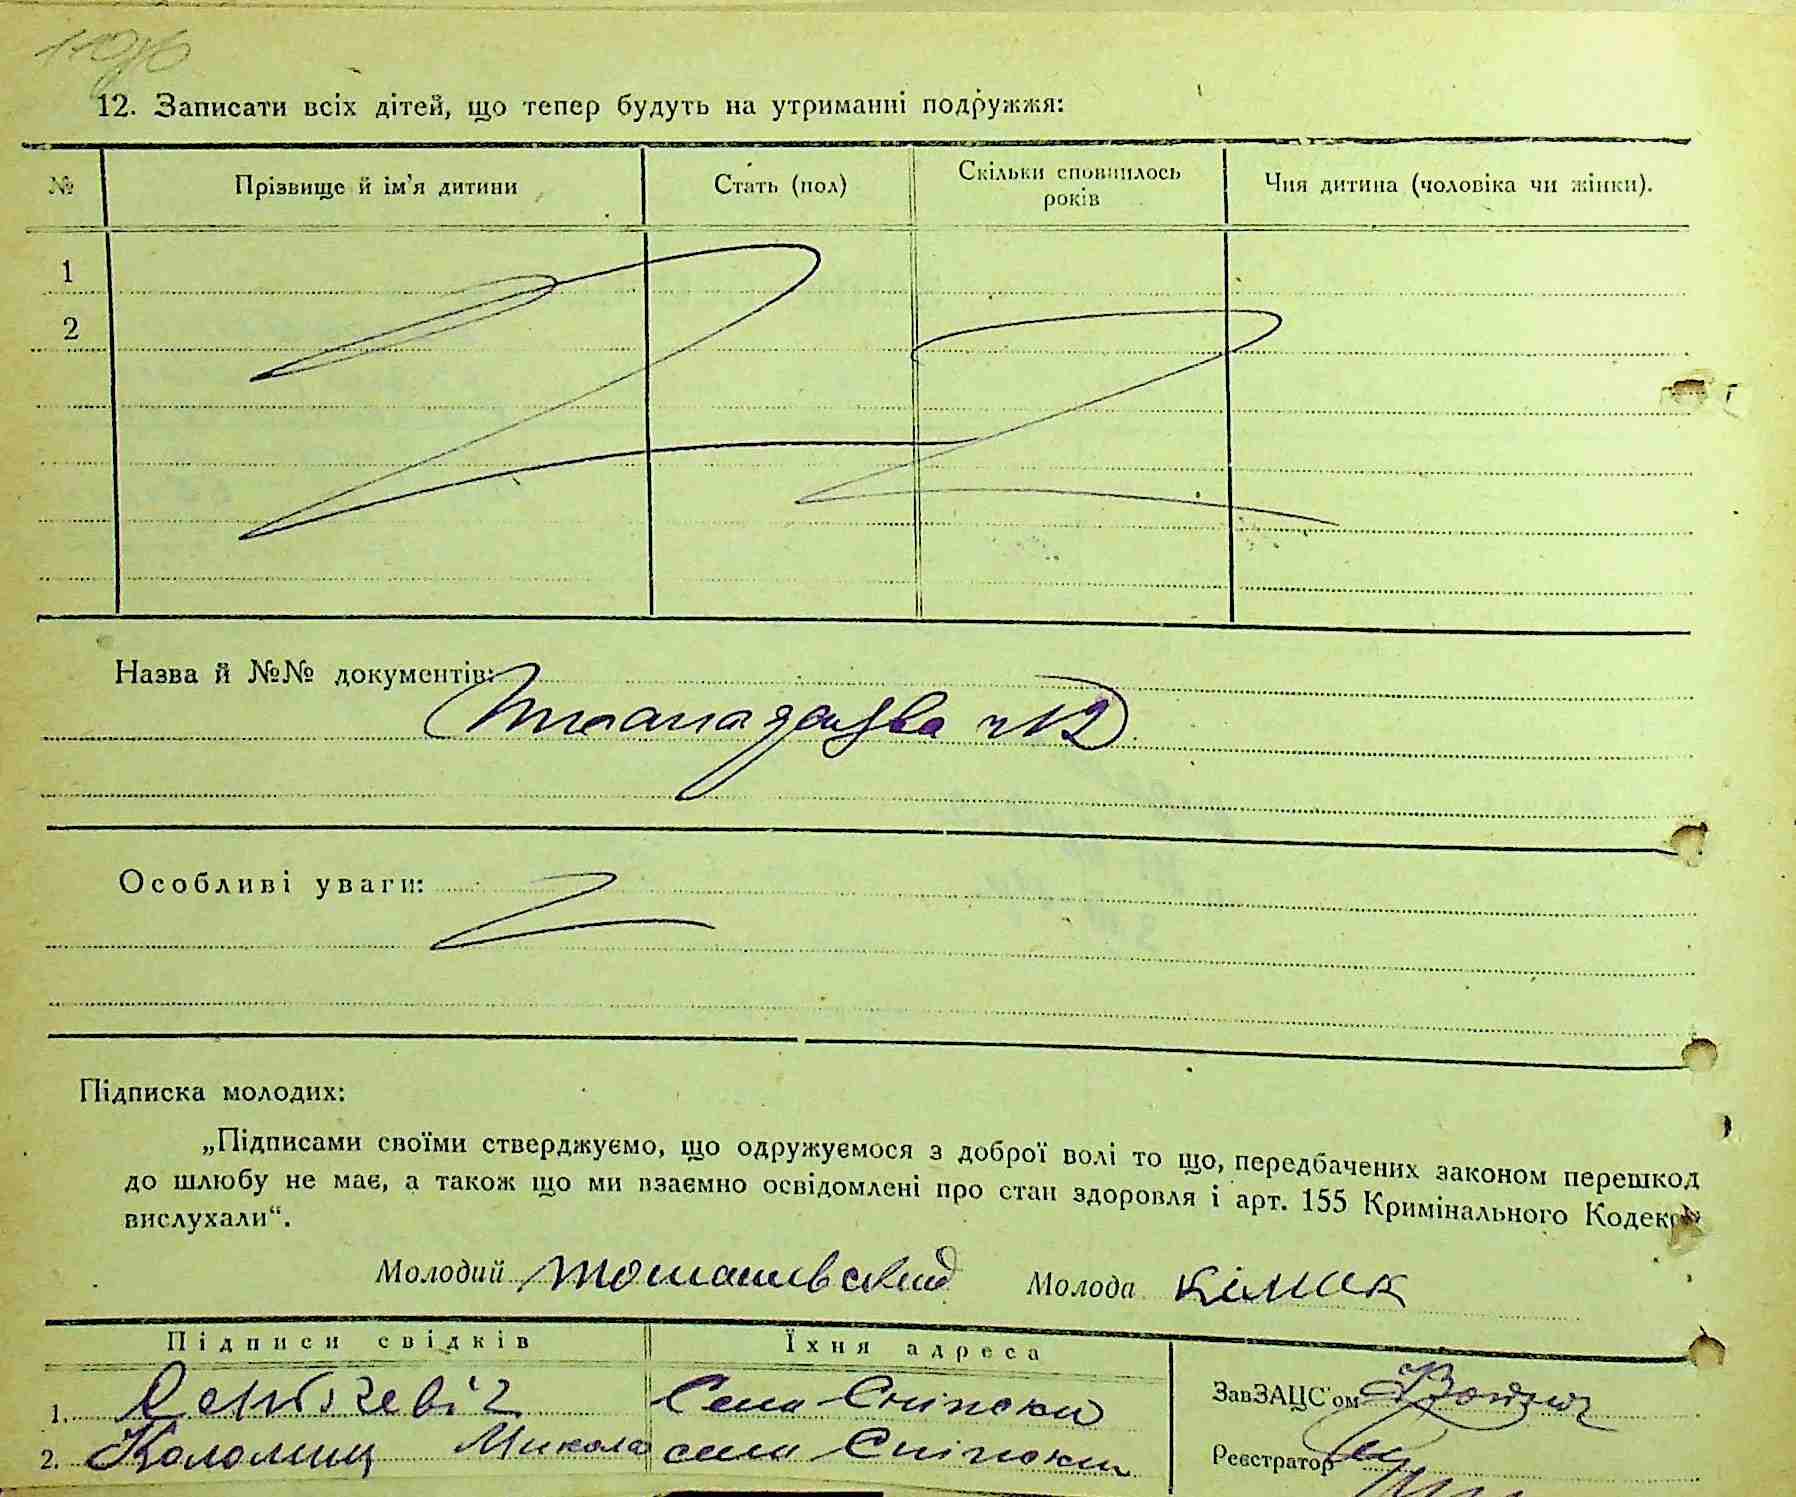 12. Записати всіх дітей, що тепер будуть на утриманні подружжя:
№ Прізвище й ім’я дитини Стать (пол) Скільки сповнилось років Чия дитина (чоловіка чи жінки).
1
2
Назва й №№ документів:
Особливі уваги:
Підписка молодих:
„Підписами своїми стверджуємо, що одружуємося з доброї волі то що, передбачених законом перешкод
до шлюбу не має, а також що ми взаємно освідомлені про стан здоровля і арт. 155 Кримінального Кодексу
вислухали“.
Молодий Томашевский Молода Кілик
Підписи свідків Їхня адреса
1. Село ЗавЗАЦС’ом
2. Коломиц Микола село Реєстратор